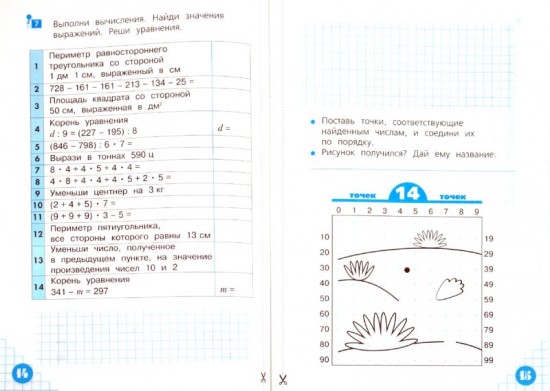 7 Выполни вычисления. Найди значения
выражений. Реши уравнения.
1 Периметр равностороннего
треугольника со стороной
1 дм 1 см, выраженный в см
2 728 – 161 – 161 – 213 – 134 – 25 =
3 Площадь квадрата со стороной
50 см, выраженная в дм²
4 Корень уравнения
d : 9 = (227 – 195) : 8 d =
5 (846 – 798) : 6 • 7 =
6 Вырази в тоннах 590 ц
7 8 • 4 + 4 • 5 + 4 + 4 =
8 4 • 8 + 4 • 4 + 4 • 5 + 2 • 5 =
9 Уменьши центнер на 3 кг
10 (2 + 4 + 5) • 7 =
11 (9 + 9 + 9) • 3 – 5 =
12 Периметр пятиугольника,
все стороны которого равны 13 см
13 Уменьши число, полученное
в предыдущем пункте, на значение
произведения чисел 10 и 2
14 Корень уравнения
341 – m = 297 m =
14
• Поставь точки, соответствующие
найденным числам, и соедини их
по порядку.
• Рисунок получился? Дай ему название.
точек 14 точек
0 1 2 3 4 5 6 7 8 9
10 19
20 29
30 39
40 49
50 59
60 69
70 79
80 89
90 99
15